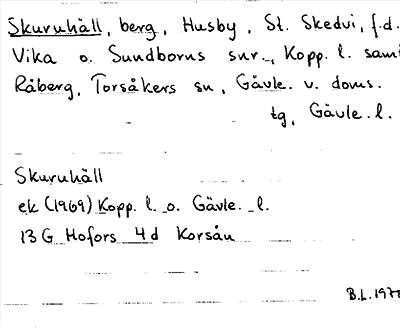 Skuruhäll, berg, Husby, St. Skedvi, f.d.
Vika o. Sundborns snr., Kopp. l. samt
Råberg, Torsåkers sn, Gävle. v. doms.
tg, Gävle. l.
Skuruhäll
ek (1969) Kopp. l. o. Gävle. l.
13 G Hofors 4 d Korsån
B.L. 1978